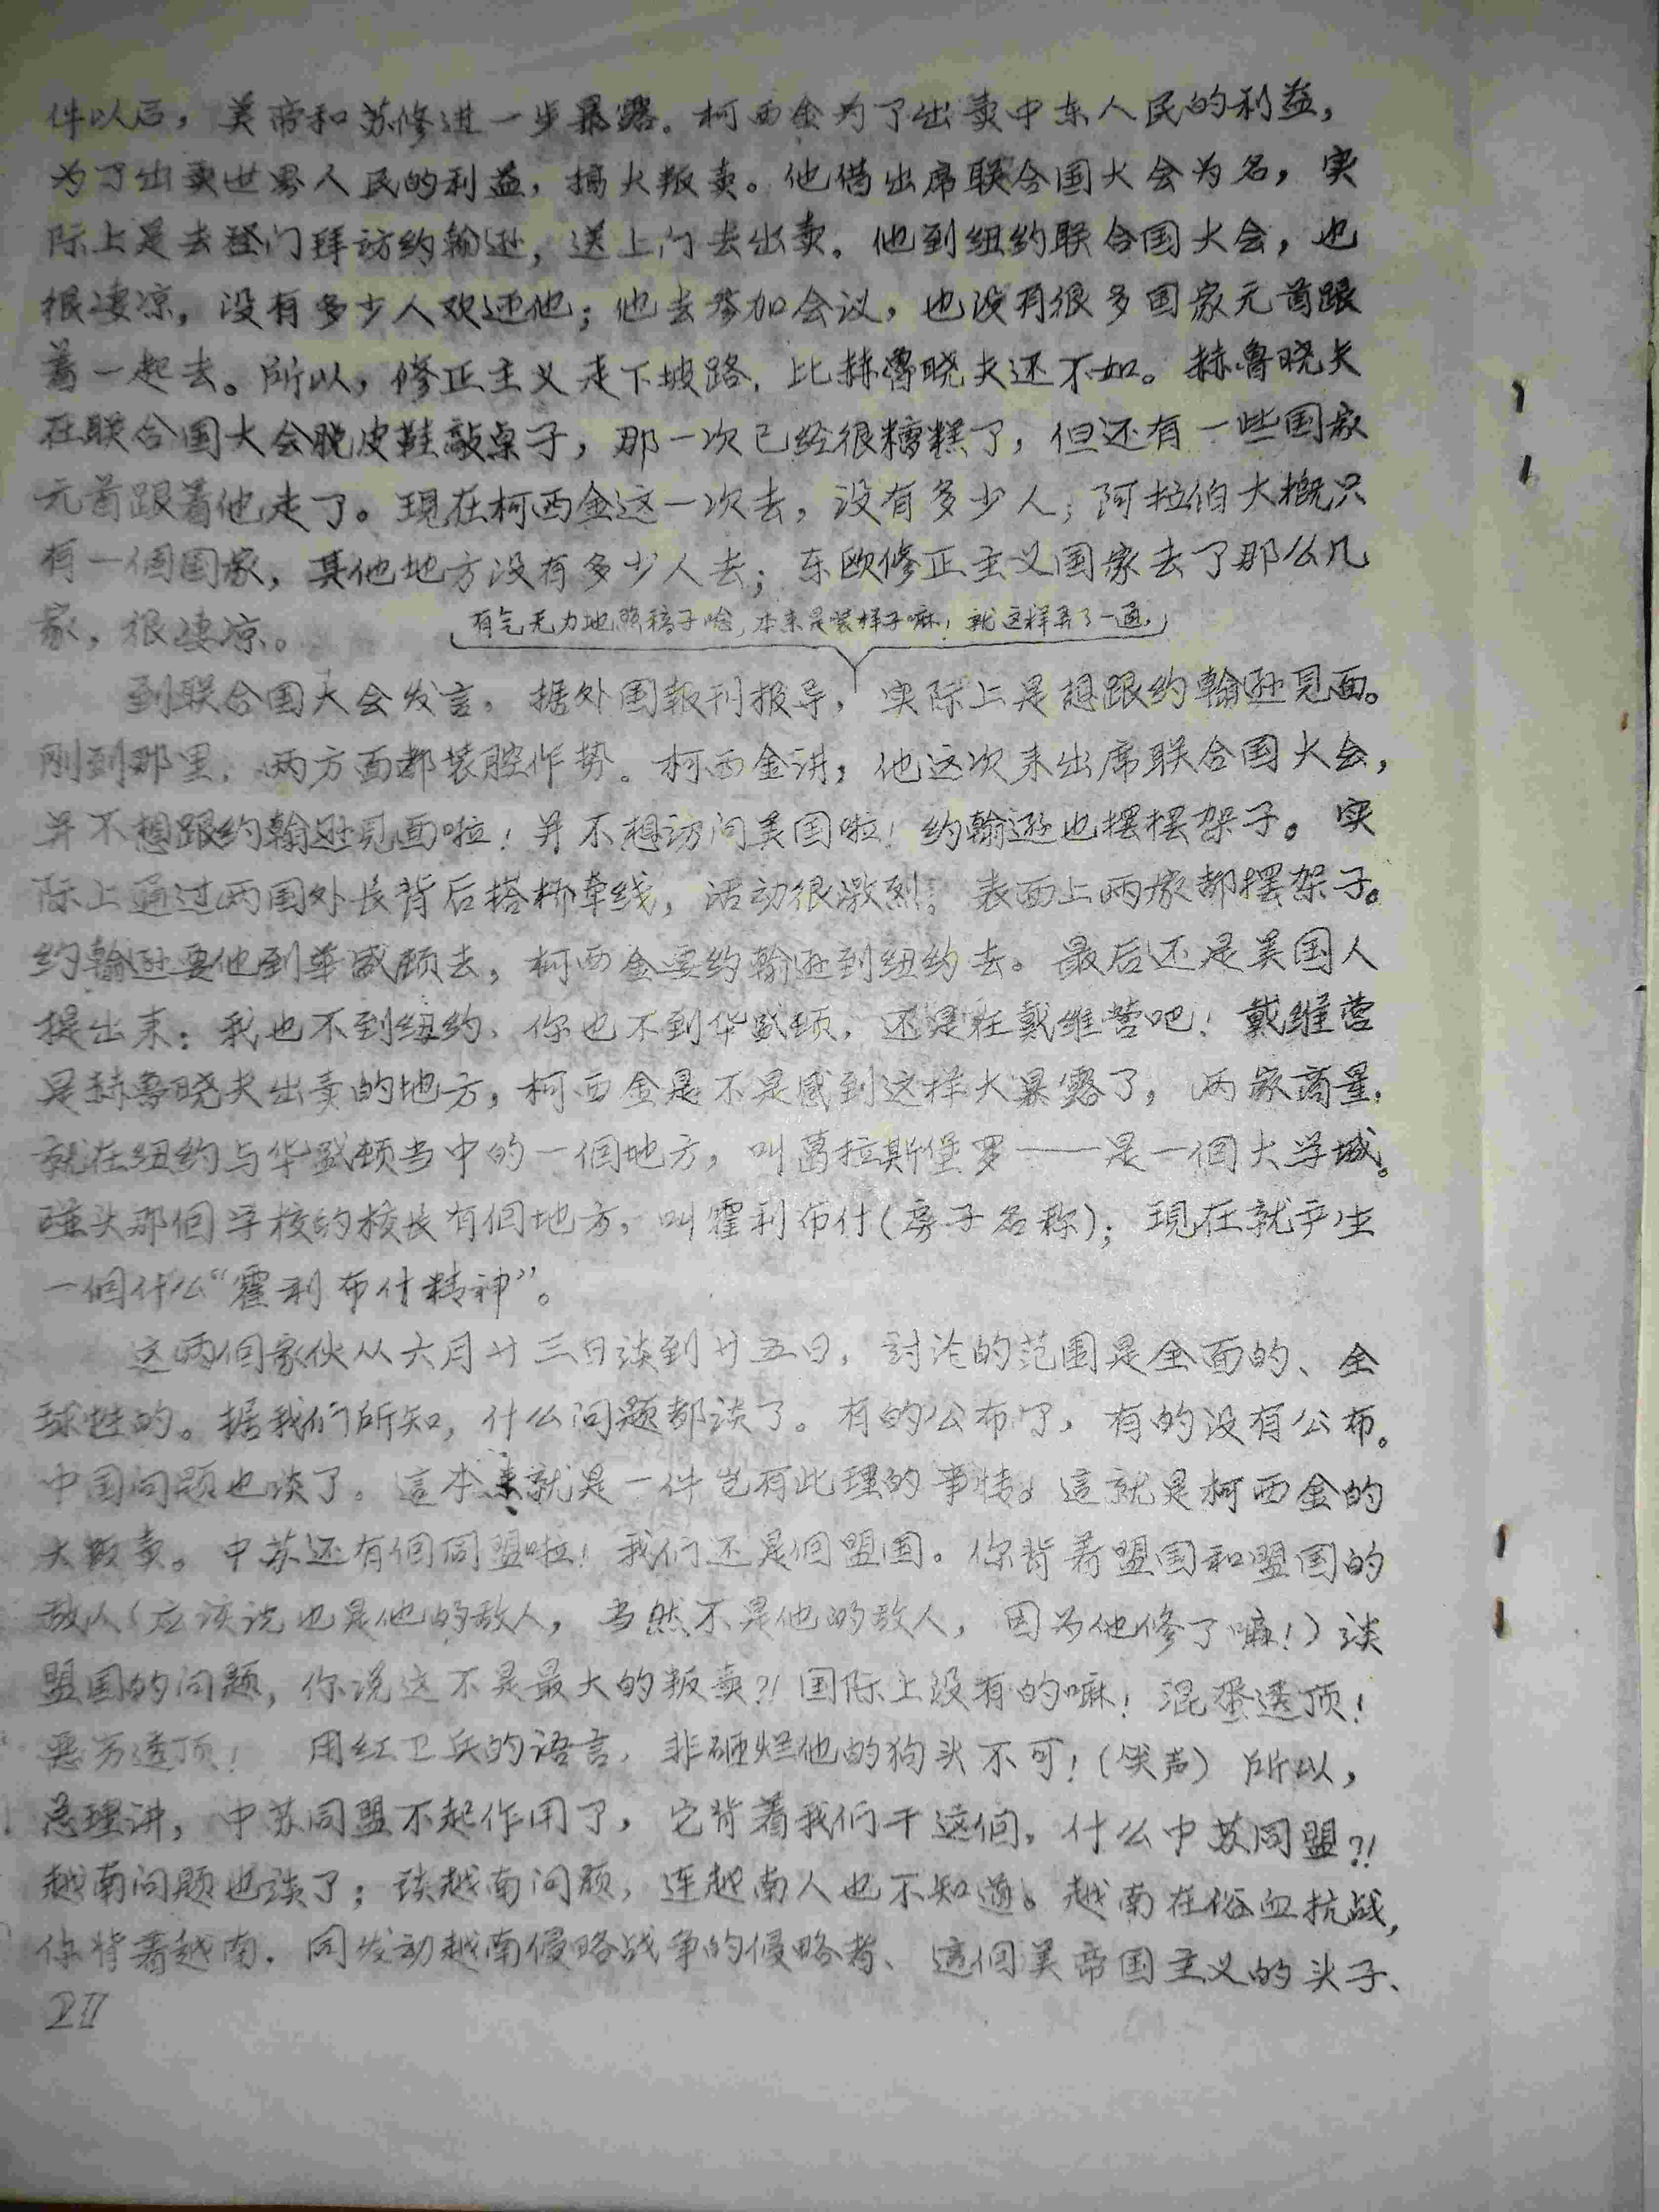 件以后，美帝和苏修进一步暴露。柯西金为了出卖中东人民的利益，
为了出卖世界人民的利益，搞大叛卖。他借出席联合国大会为名，实
际上是去登门拜访约翰逊，送上门去出卖。他到纽约联合国大会，也
很凄凉，没有多少人欢迎他；他去参加会议，也没有很多国家元首跟
着一起去。所以，修正主义走下坡路，比赫鲁晓夫还不如。赫鲁晓夫
在联合国大会脱皮鞋敲桌子，那一次已经很糟糕了，但还有一些国家
元首跟着他走了。現在柯西金这一次去，没有多少人；阿拉伯大概只
有一個国家，其他地方没有多少人去；东欧修正主义国家去了那么几
家，很凄凉。
有气无力地照稿子唸，本来是装样子嘛！就这样弄了一通，
到联合国大会发言，据外国報刊报导，实际上是想跟约翰逊見面。
刚到那里，两方面都装腔作势。柯西金讲，他这次来出席联合国大会，
并不想跟约翰逊見面啦！并不想访问美国啦！约翰逊也摆摆架子。实
际上通过两国外长背后搭桥牵线，活动很激烈；表面上两家都摆架子。
约翰逊要他到华盛顿去，柯西金要约翰逊到纽约去。最后还是美国人
提出来：我也不到纽约，你也不到华盛顿，还是在戴维营吧！戴维营
是赫鲁晓夫出卖的地方，柯西金是不是感到这样太暴露了，两家商量，
就在纽约与华盛顿当中的一個地方，叫葛拉斯堡罗——是一個大学城。
碰头那個学校的校长有個地方，叫霍利布什（房子名称）；現在就产生
一個什么“霍利布什精神”。
这两個家伙从六月廿三日谈到廿五日，討论的范围是全面的、全
球性的。据我们所知，什么问题都谈了。有的公布了，有的没有公布。
中国问题也谈了。這本来就是一件岂有此理的事情。這就是柯西金的
大叛卖。中苏还有個同盟啦！我们还是個盟国。你背着盟国和盟国的
敌人（应该说也是他的敌人，当然不是他的敌人，因为他修了嘛！）谈
盟国的问题，你说这不是最大的叛卖？！国际上没有的嘛！混蛋透顶！
恶劣透顶！用红卫兵的语言，非砸烂他的狗头不可！（笑声）所以，
总理讲，中苏同盟不起作用了，它背着我们干这個，什么中苏同盟？！
越南问题也谈了；谈越南问题，连越南人也不知道。越南在浴血抗战，
你背着越南，同发动越南侵略战争的侵略者、這個美帝国主义的头子、